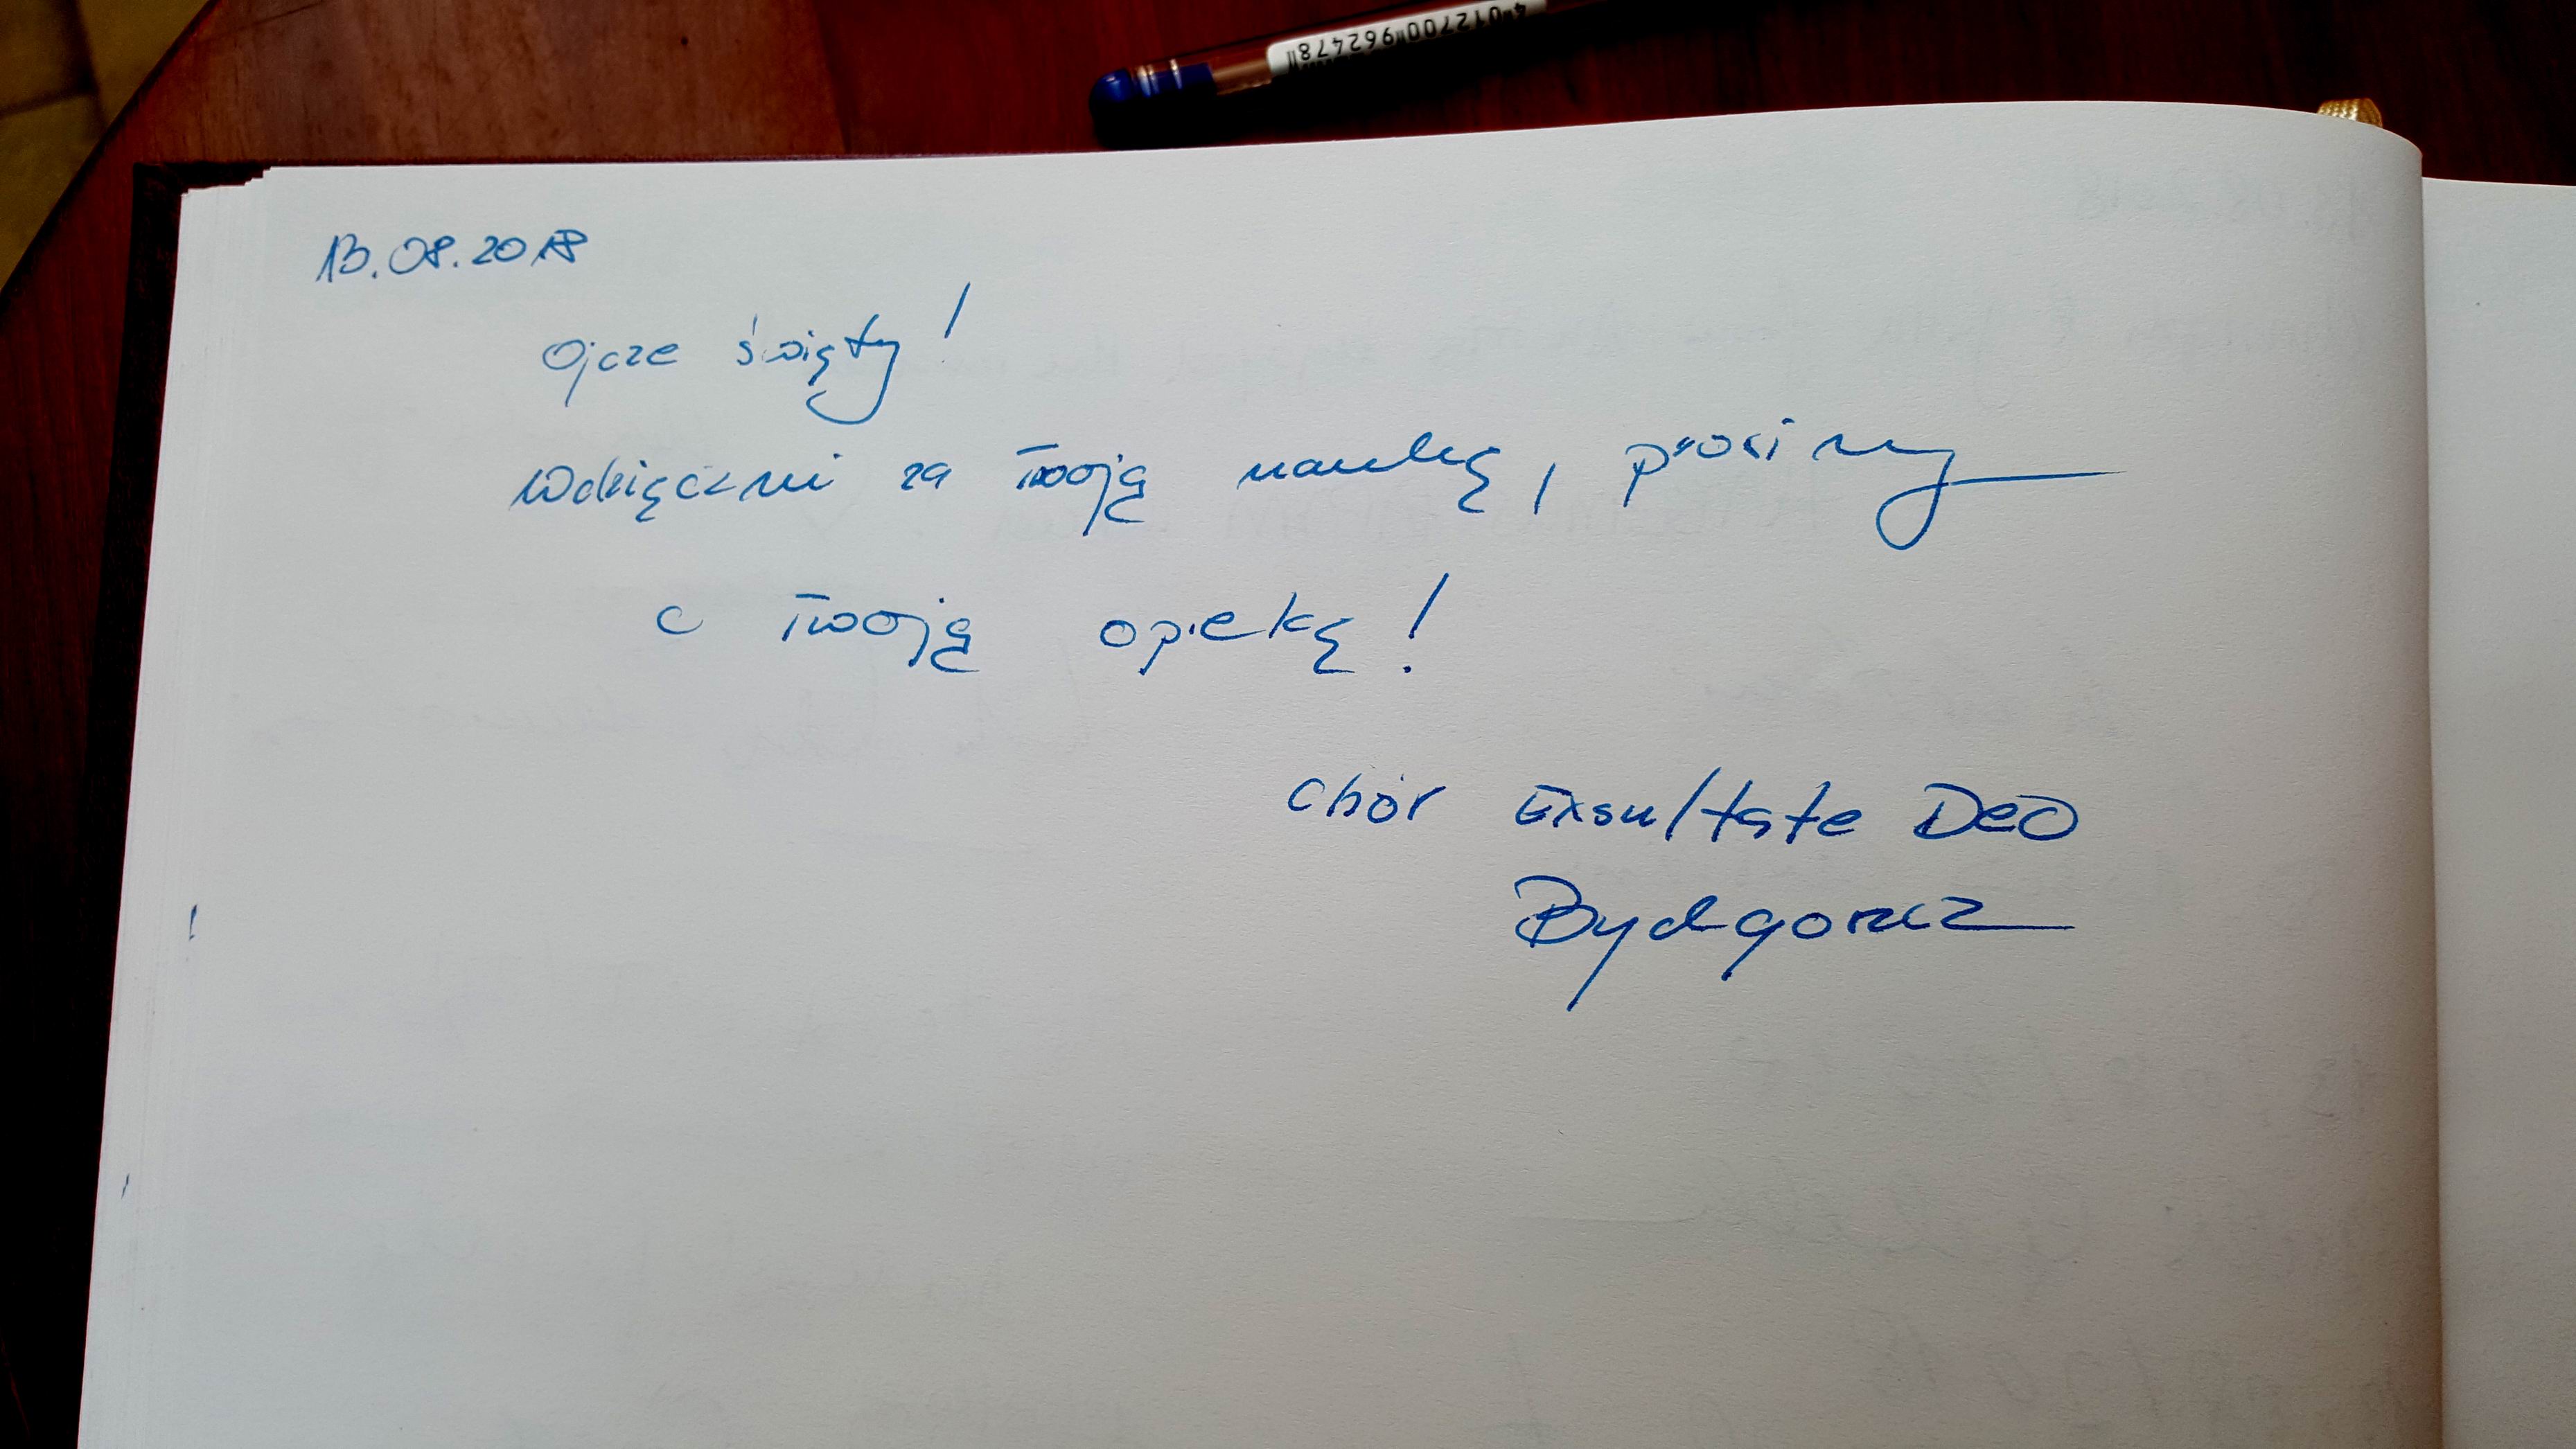 4"012700"962478
13.08.2018
Ojcze święty!
Wdzięczni za Twoją naukę, prosimy
o Twoją opiekę!
Chór Exsultate Deo
Bydgoszcz